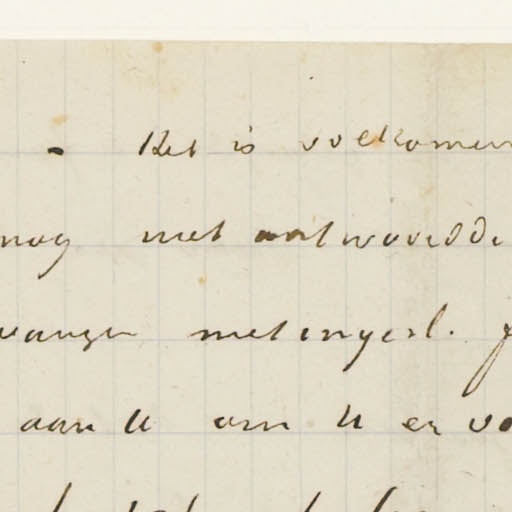 - Het is volkomen
nog niet antwoordde
vangen met ingesl.
aan U om U er vo